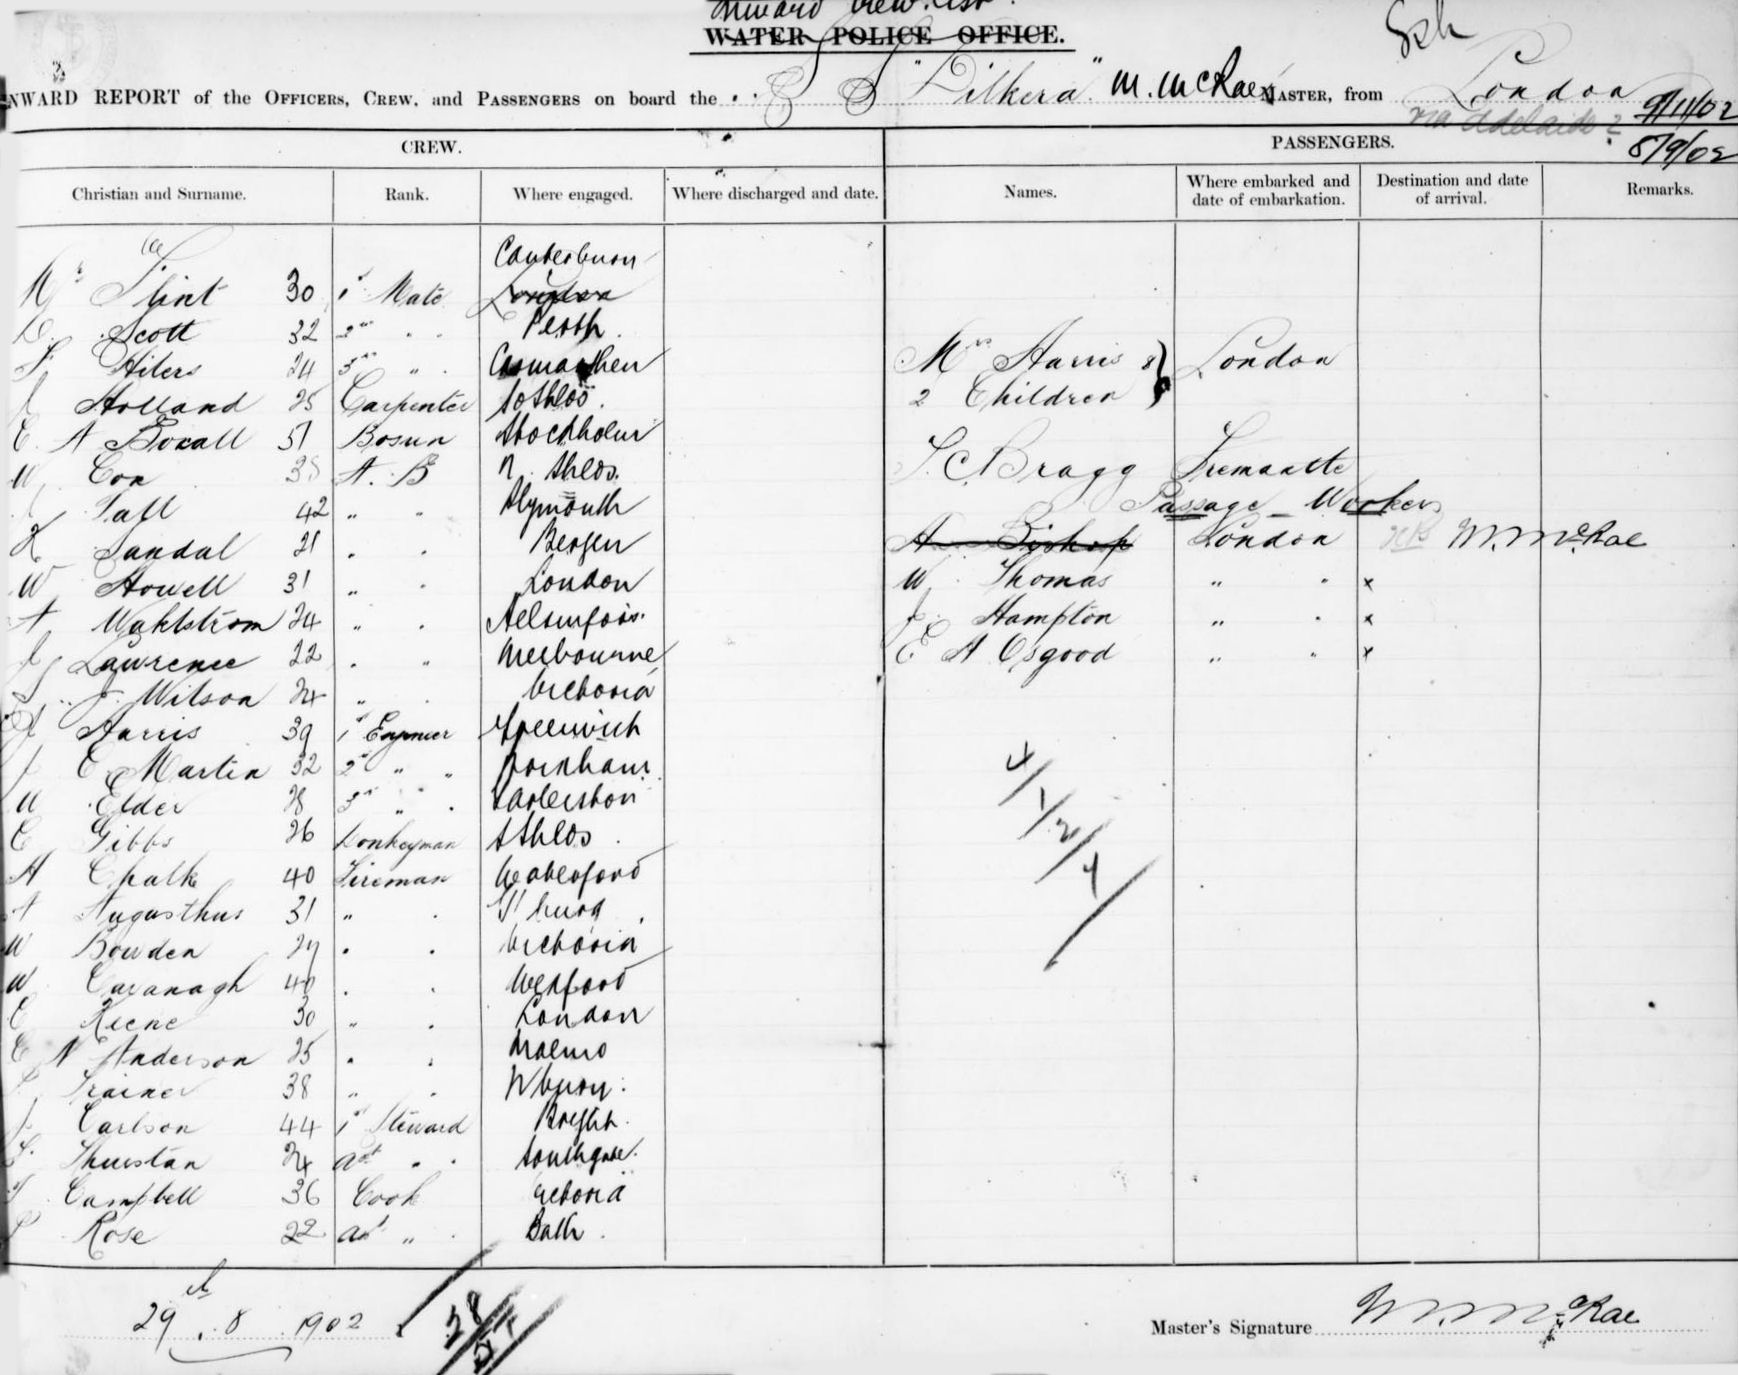 Inward Crew List.
WATER POLICE OFFICE.
NWARD REPORT of the OFFICERS, CREW, and PASSENGERS on board the S S "Dilkera" M. McRae MASTER, from London
via Adelaide 9/11/02
8/9/02
CREW. PASSENGERS.
Christian and Surname. Rank. Where engaged. Where discharged and date. Names. Where embarked and date of embarkation. Destination and date of arrival. Remarks.
Canterbury
Mr Flint 30 1st Mate London
Scott 32 2nd " " Perth
Hilers 24 3rd " " Carmarthen
Mrs Harris & } London
J Holland 25 Carpenter
2 Children
C. A Boxall 51 Bosun Stockholm
W Cox A. B N. Shlds.
T. C. Bragg Fremantle
42 " " Plymouth
Passage Workers
K Sandal 21 " " Bergen
A Bishop London M. McRae
W Howell 31 " " London
W Thomas " " x
A Wahlstrom 24 " " Helsingfors
J. Hampton " " x
J Lawrence 22 " " Melbourne
E A Osgood " " x
J Wilson 24 " " Victoria
Harris 39 1st Engineer Greenwich
J C Martin 32 2nd " "
W Elder 28 3rd " "
C Gibbs 26 Donkeyman S Shlds
H Chalk 40 Fireman Waterford
A Augasthus 31 " "
W Bowden 27 " " Victoria
W Cavanagh 40 " " Wexford
C Keene 30 " " London
C N Anderson 25 " " Malmo
Trainer 38 " "
J Carlson 44 1st Steward
Thurstan 24 ast " " Southgate
Campbell 36 Cook Victoria
Rose 22 ast " Bath
4/1/2/4
29th . 8 . 1902
28
Master's Signature M. McRae